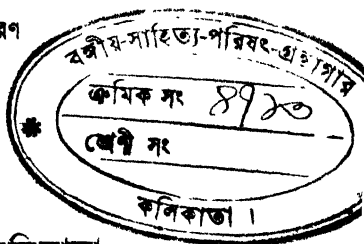 রণ
বঙ্গীয়-সাহিত্য-পরিষৎ-গ্রন্থাগার
ক্রমিক সং ৪৭১৩
শ্রেণী সং
কলিকাতা ।